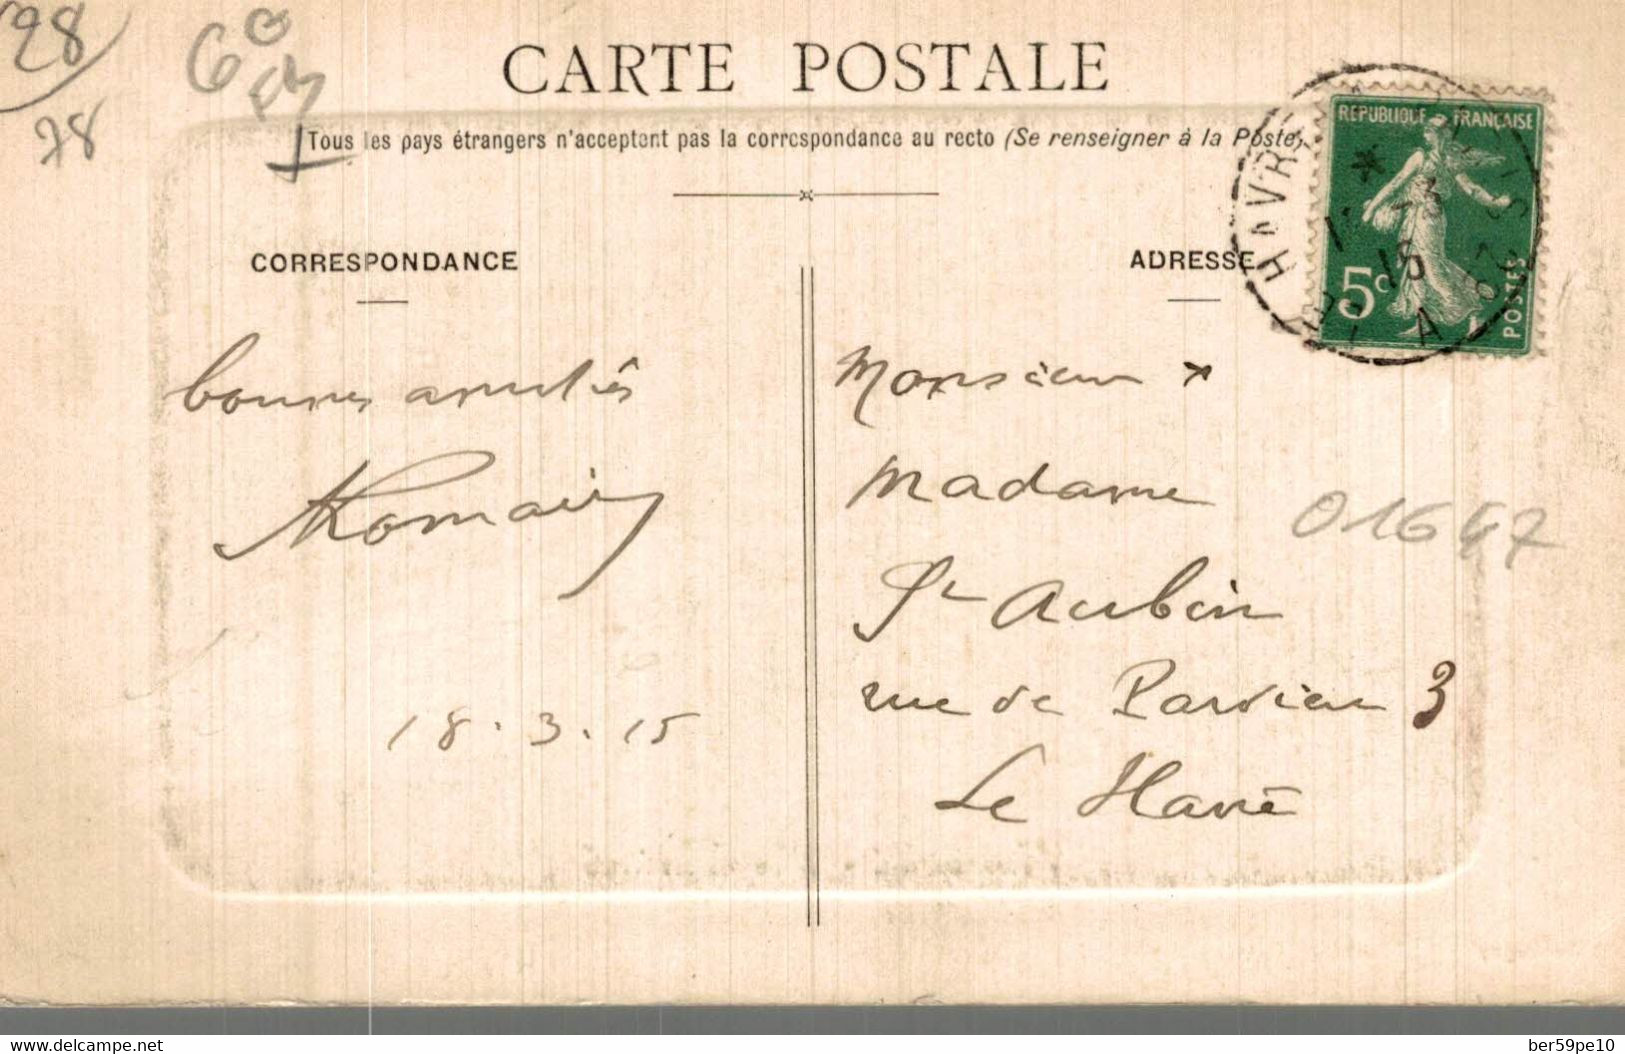 28
78
CARTE POSTALE
Tous les pays étrangers n'acceptent pas la correspondance au recto (Se renseigner à la Poste)
REPUBLIQUE FRANÇAISE
5c
POSTES
HAVRE
CORRESPONDANCE
ADRESSE
bonnes amitiés
Romain
18.3.15
Monsieur
Madame
St Aubin
rue de 3
Le Havre
01647
www.delcampe.net
ber59pe10